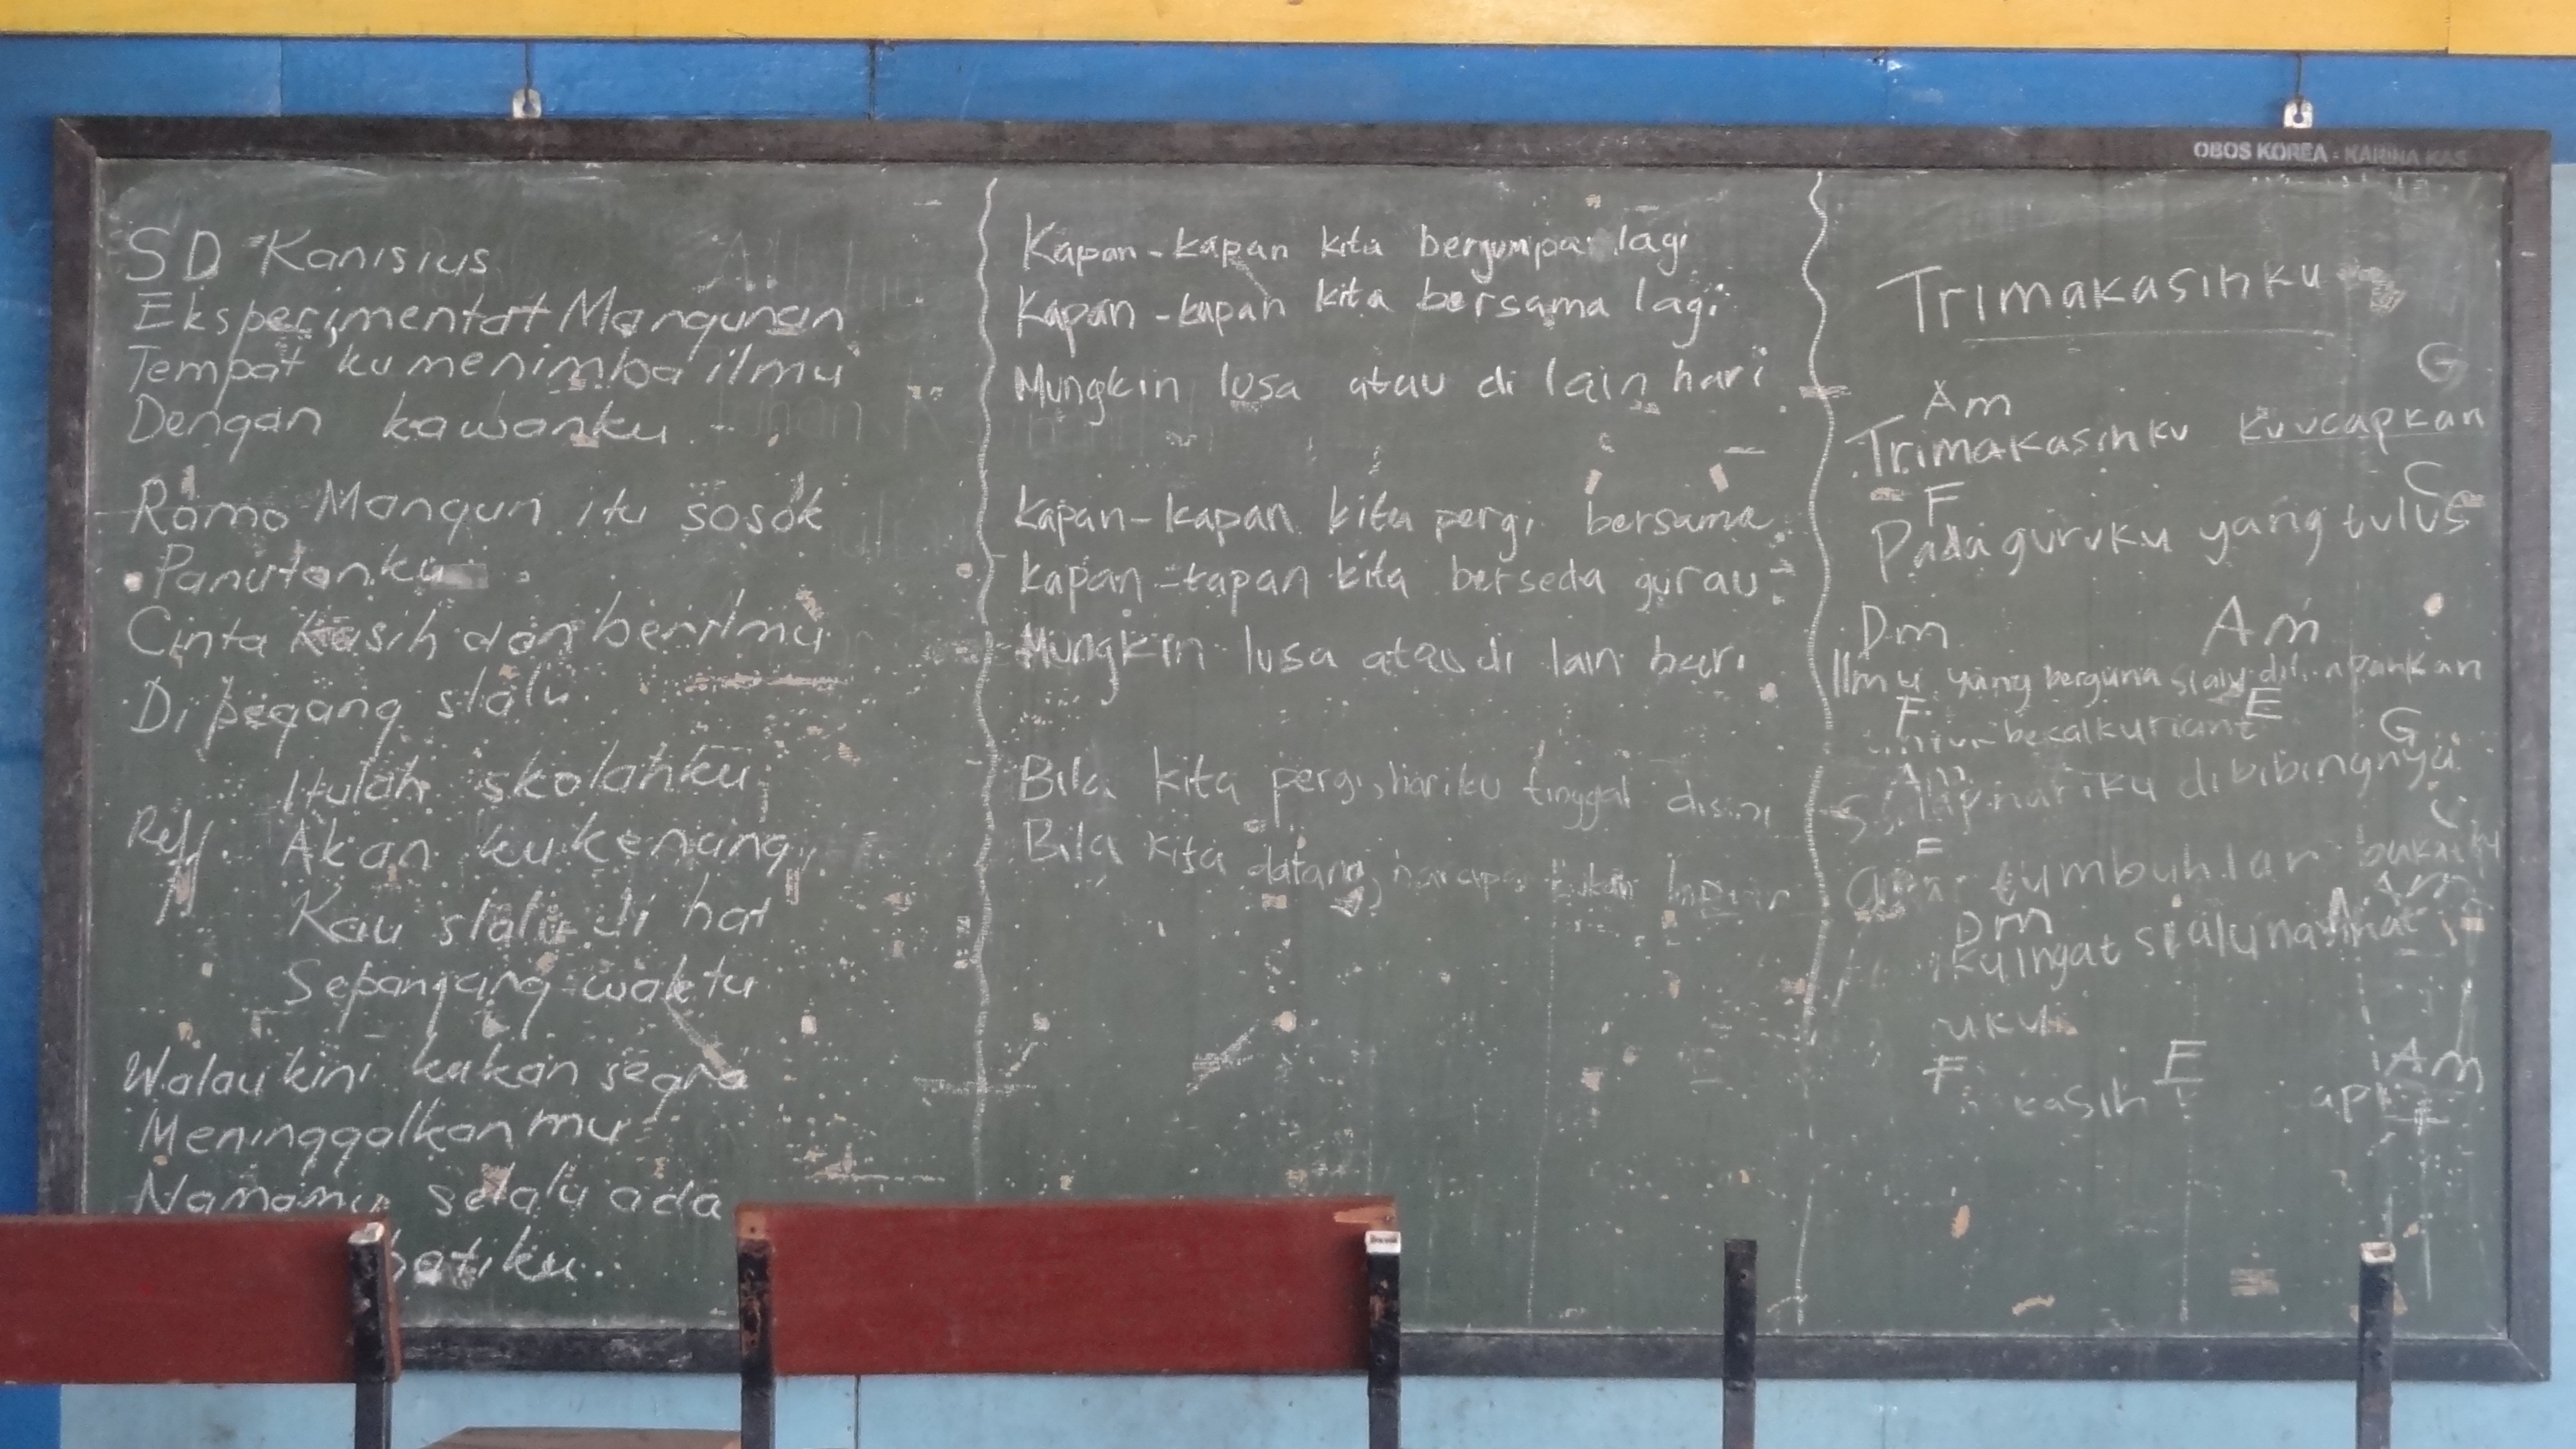 OBOS KOREA - KARINA KAS
SD Kanisius
Eksperimental Mangunan
Tempat ku menimba ilmu
Dengan kawanku
Romo Mangun itu sosok
Panutanku
Cinta kasih dan berilmu
Di pegang slalu
Itulah skolahku
Reff. Akan ku kenang
Kau slalu di hat
Sepanjang waktu
Walau kini kukan segra
Meninggalkanmu
Namamu selalu ada
hatiku..
Kapan-kapan kita berjumpa lagi
Kapan-kapan kita bersama lagi
Mungkin lusa atau di lain hari
Kapan-kapan kita pergi bersama
kapan-kapan kita berseda gurau
Mungkin lusa atau di lain hari
Bila kita pergi, hariku tinggal disini
Bila kita datang, bukan
Trimakasihku
Am G
Trimakasihku kuucapkan
F C
Pada guruku yang tulus
Dm Am
Ilmu yang berguna slalu
F E
bekalku
Am G
hariku dibibingnya
F C
tumbuhlah
Dm Am
kuingat slalu
uku
F E Am
kasih